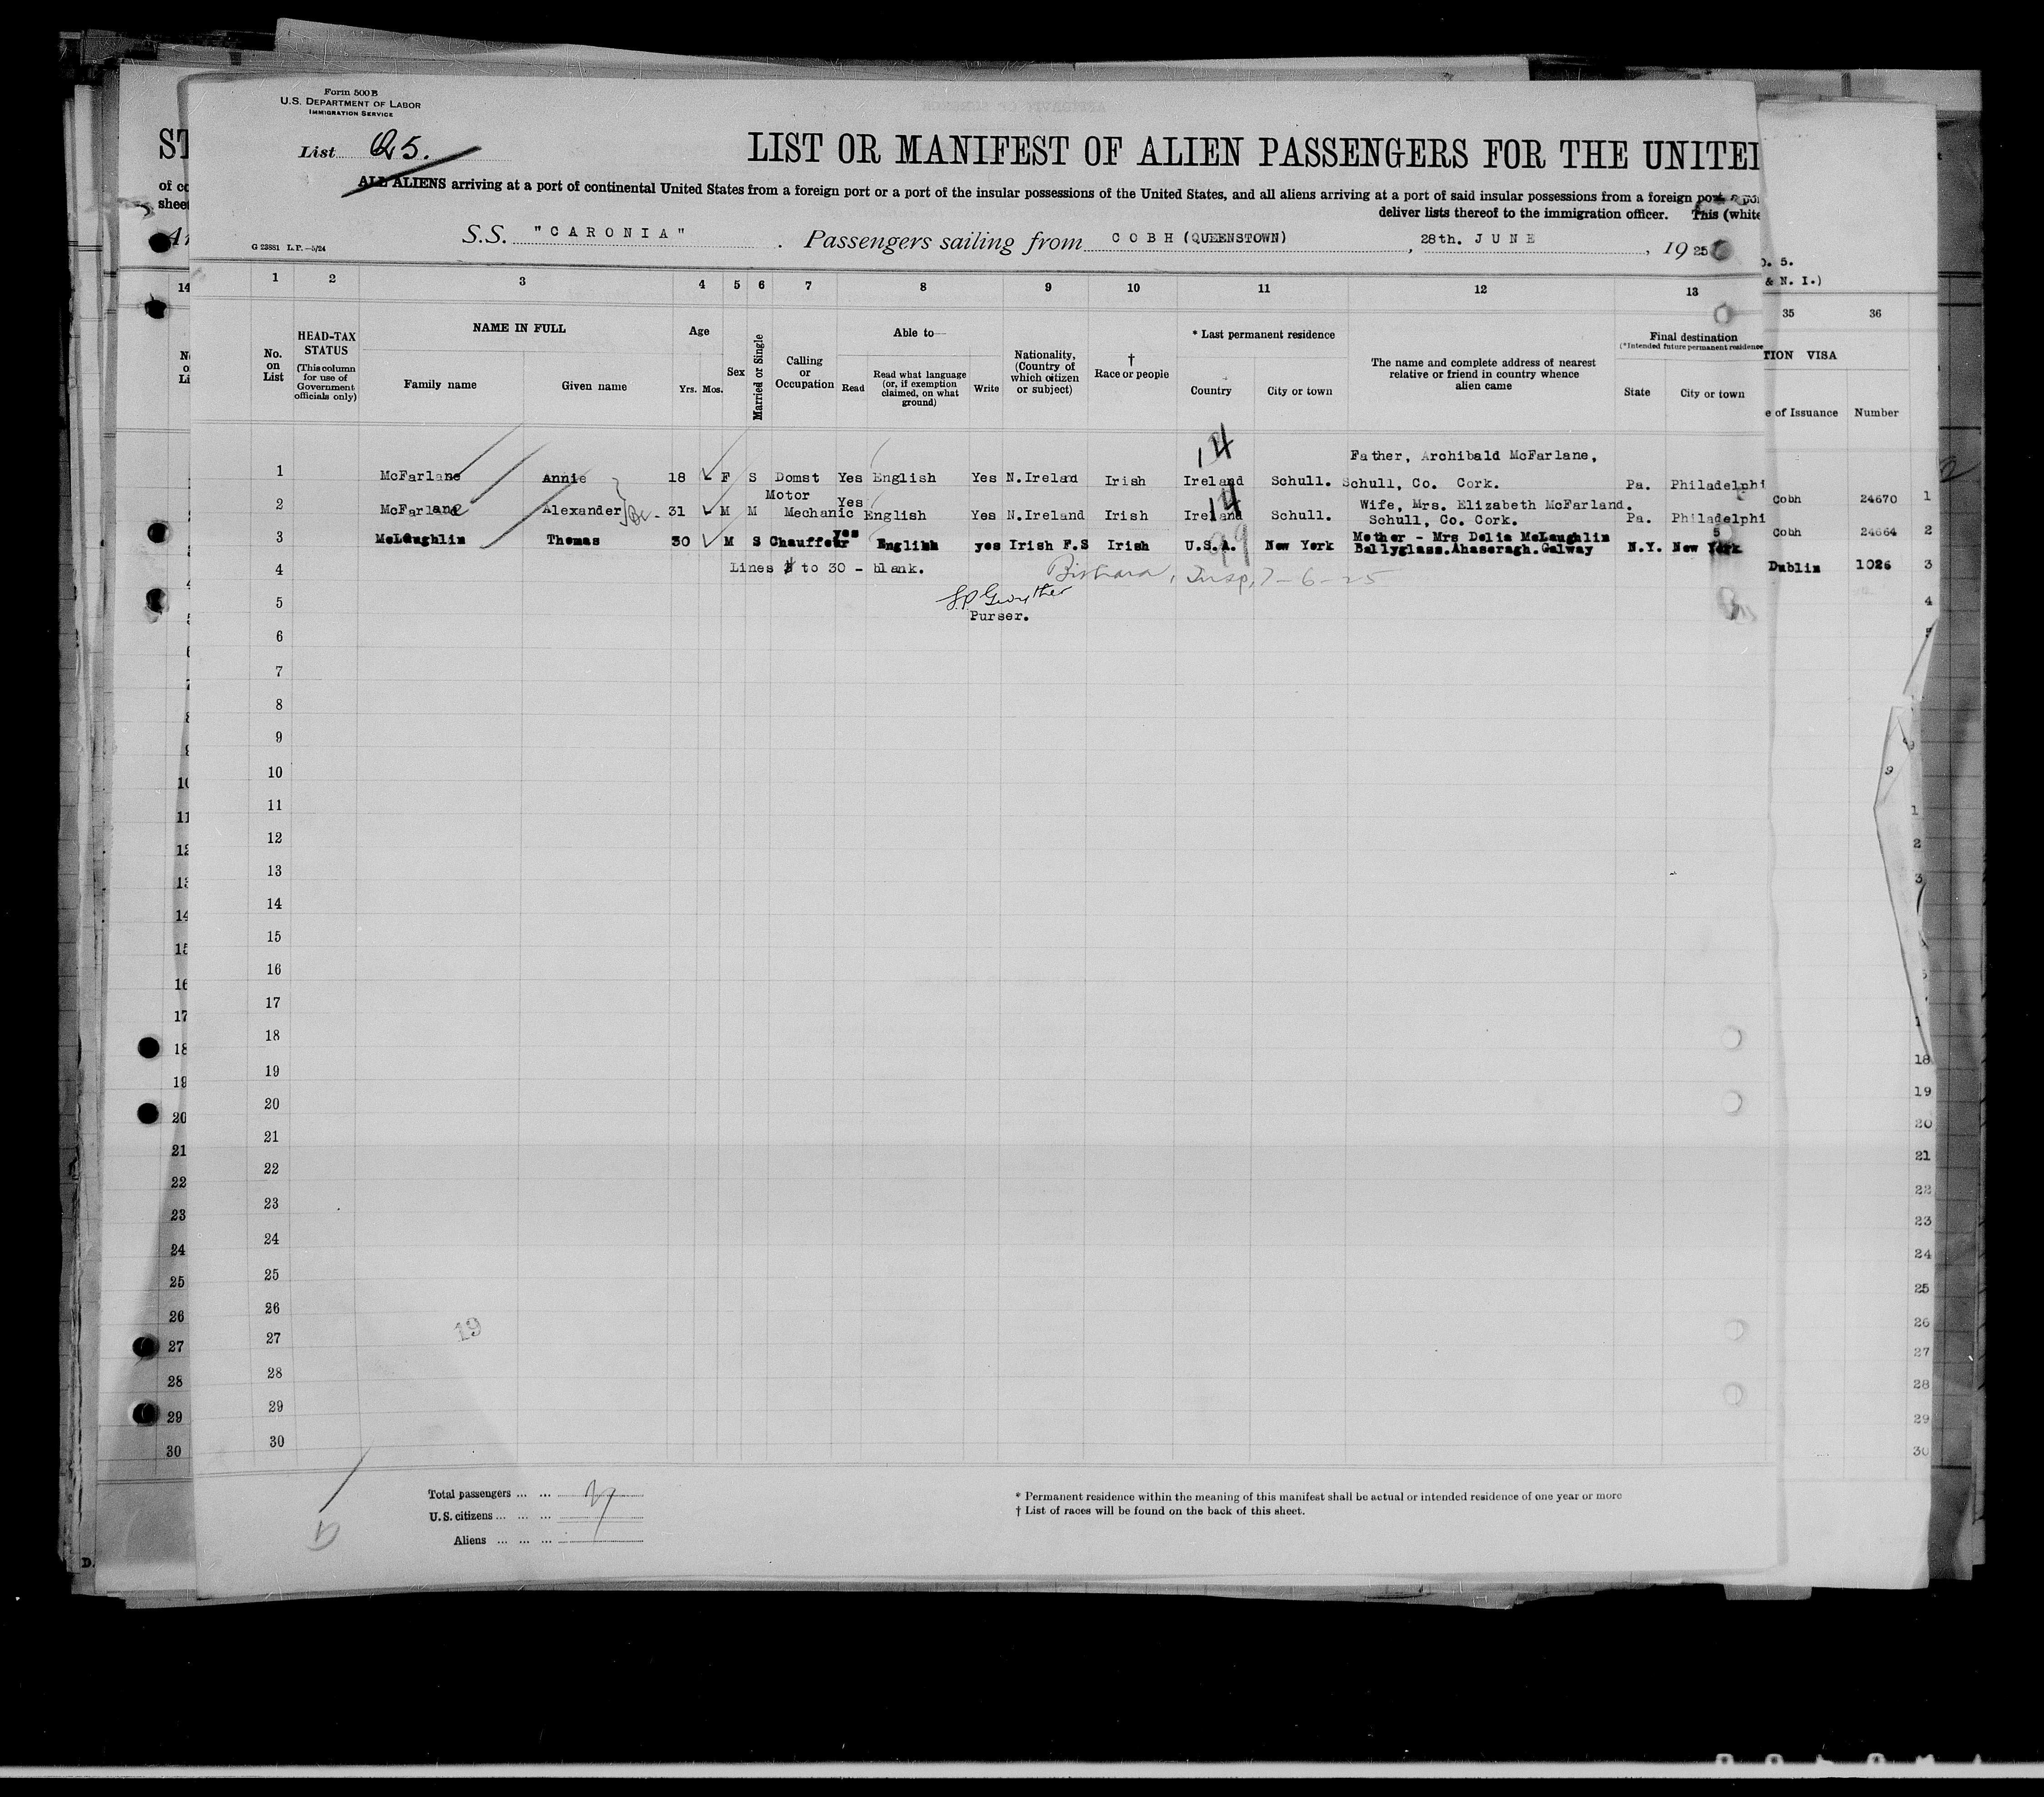 Form 500 B
U.S. DEPARTMENT OF LABOR
IMMIGRATION SERVICE
List 5.
LIST OR MANIFEST OF ALIEN PASSENGERS FOR THE UNITED
ALL ALIENS arriving at a port of continental United States from a foreign port or a port of the insular possessions of the United States, and all aliens arriving at a port of said insular possessions from a foreign port
deliver lists thereof to the immigration officer. This (white
G 23881 L.P.—5/24
S.S. "CARONIA" . Passengers sailing from COBH (QUEENSTOWN) , 28th. JUNE , 1925
1 2 3 4 5 6 7 8 9 10 11 12 13 35 36
No. on List
HEAD-TAX STATUS (This column for use of Government officials only)
NAME IN FULL
Family name Given name
Age
Yrs. Mos.
Sex
Married or Single
Calling or Occupation
Able to—
Read Read what language (or, if exemption claimed, on what ground) Write
Nationality, (Country of which citizen or subject)
† Race or people
* Last permanent residence
Country City or town
The name and complete address of nearest relative or friend in country whence alien came
Final destination
(*Intended future permanent residence
State City or town
TION VISA
e of Issuance Number
14
Father, Archibald McFarlane,
1 McFarlane Annie 18 F S Domst Yes English Yes N.Irelad Irish Ireland Schull. Schull, Co. Cork. Pa. Philadelphi Cobh 24670 1
14
Motor Yes Wife, Mrs. Elizabeth McFarland.
2 McFarlane Alexander 31 M M Mechanic English Yes N.Ireland Irish Ireland Schull. Schull, Co. Cork. Pa. Philadelphi Cobh 24664 2
yes Mother - Mrs Delia McLaughlin
3 McLaughlin Thomas 30 M S Chauffeur English yes Irish F.S Irish U.S.A. New York Ballyglass.Ahaseragh.Galway N.Y. New York Dublin 1026 3
99
4 Lines 4 to 30 - blank. Insp, 7-6-25
5
Purser.
6
7
8
9
10
11
12
13
14
15
16
17
18
19
20
21
22
23
24
25
26
27
19
28
29
30
Total passengers ... ...
U.S. citizens ... ... ...
Aliens ... ... ...
* Permanent residence within the meaning of this manifest shall be actual or intended residence of one year or more
† List of races will be found on the back of this sheet.